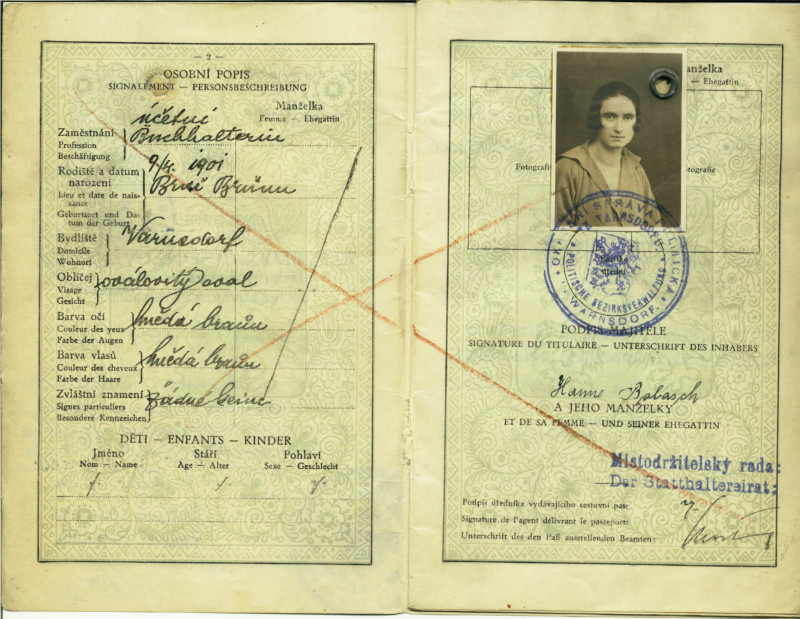 — 2 —
OSOBNÍ POPIS
SIGNALEMENT — PERSONSBESCHREIBUNG
Manželka
Femme — Ehegattin
účetní
Zaměstnání
Profession
Beschäftigung
Buchhalterin
9/4. 1901
Rodiště a datum
narození
Lieu et date de nais-
sance
Geburtsort und Da-
tum der Geburt
Brně Brünn
Bydliště
Domicile
Wohnort
Varnsdorf
Obličej
Visage
Gesicht
oválovitý oval
Barva očí
Couleur des yeux
Farbe der Augen
hnědá braun
Barva vlasů
Couleur des cheveux
Farbe der Haare
hnědá braun
Zvláštní znamení
Signes particuliers
Besondere Kennzeichen
žádné keine
DĚTI — ENFANTS — KINDER
Jméno Stáří Pohlaví
Nom — Name Age — Alter Sexe — Geschlecht
anželka
— Ehegattin
Fotografi
tografie
VARNSDORFU
POLITISCHE BEZIRKSVERWALTUNG
WARNSDORF.
PODPIS MAJITELE
SIGNATURE DU TITULAIRE — UNTERSCHRIFT DES INHABERS
Hanne
A JEHO MANŽELKY
ET DE SA FEMME — UND SEINER EHEGATTIN
Místodržitelský rada:
Der Statthaltereirat:
Podpis úředníka vydávajícího cestovní pas:
Signature de l'agent délivrant le passeport:
Unterschrift des den Paß ausstellenden Beamten: